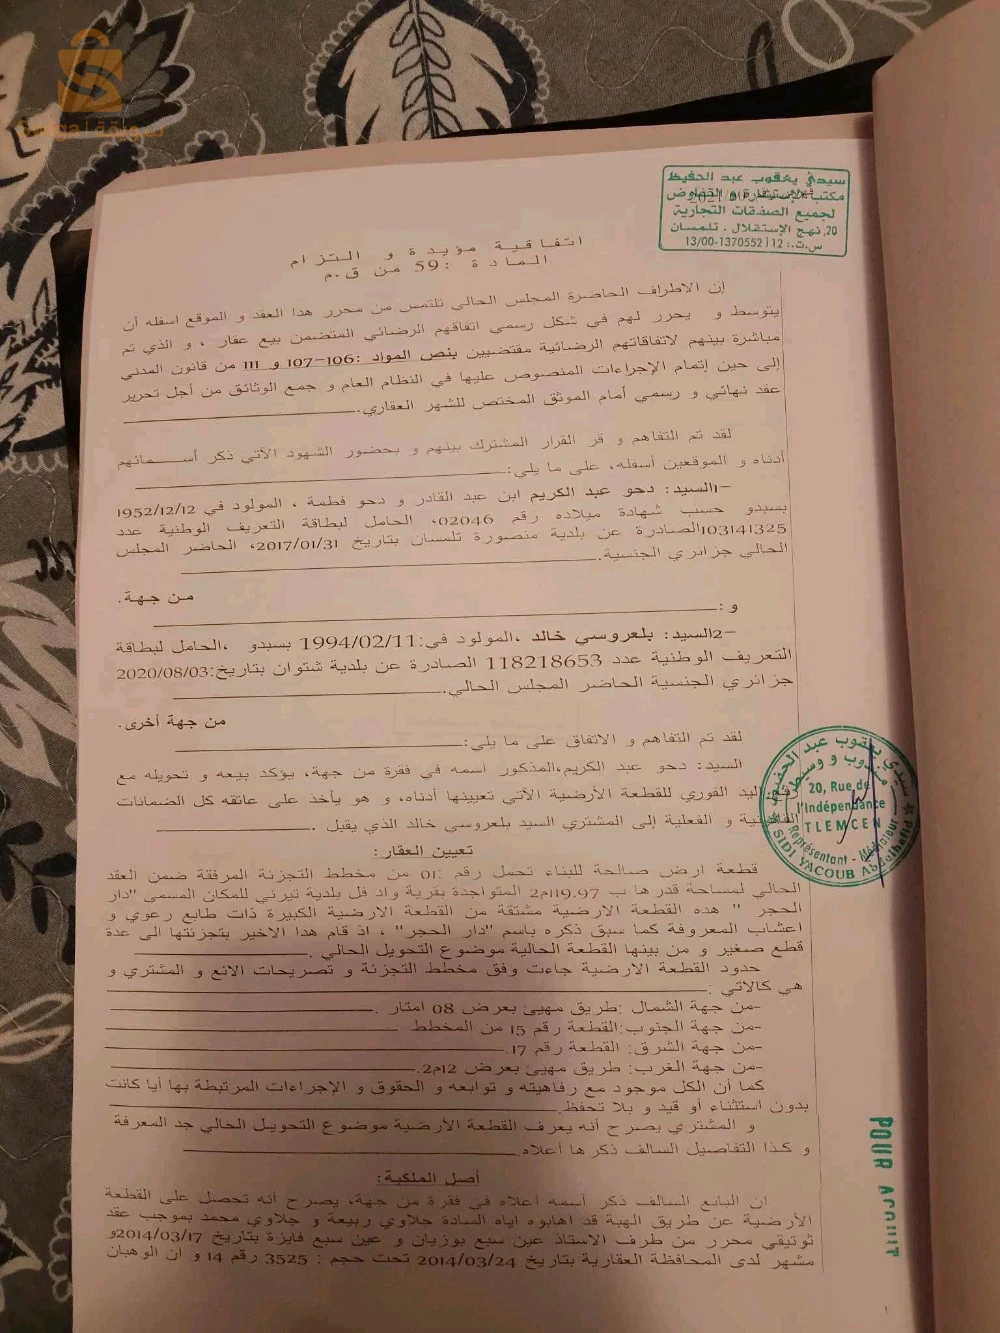 سويقة
سيدي يعقوب عبد الحفيظ
مكتب الإستشارة و التفاوض
لجميع الصفقات التجارية
20, نهج الإستقلال . تلمسان
س.ت.: 12 | 1370552-13/00
اتفاقية مؤيدة و التزام
المادة :59 من ق.م
إن الاطراف الحاضرة المجلس الحالي تلتمس من محرر هدا العقد و الموقع اسفله أن
يتوسط و يحرر لهم في شكل رسمي اتفاقهم الرضائي المتضمن بيع عقار ، و الذي تم
مباشرة بينهم لاتفاقاتهم الرضائية مقتضبين بنص المواد :106-107 و 111 من قانون المدني
إلى حين إتمام الإجراءات المنصوص عليها في النظام العام و جمع الوثائق من أجل تحرير
عقد نهائي و رسمي أمام الموثق المختص للشهر العقاري.
لقد تم التفاهم و قر القرار المشترك بينهم و بحضور الشهود الآتي ذكر أسمائهم
أدناه و الموقعين أسفله، على ما يلي:
-1السيد: دحو عبد الكريم ابن عبد القادر و دحو فطمة ، المولود في 1952/12/12
بسبدو حسب شهادة ميلاده رقم 02046، الحامل لبطاقة التعريف الوطنية عدد
103141325الصادرة عن بلدية منصورة تلمسان بتاريخ 2017/01/31، الحاضر المجلس
الحالي جزائري الجنسية.
من جهة.
و:
-2السيد: بلعروسي خالد ،المولود في:1994/02/11 بسبدو ،الحامل لبطاقة
التعريف الوطنية عدد 118218653 الصادرة عن بلدية شتوان بتاريخ:2020/08/03
جزائري الجنسية الحاضر المجلس الحالي.
من جهة أخرى.
لقد تم التفاهم و الاتفاق على ما يلي:
السيد: دحو عبد الكريم،المذكور اسمه في فقرة من جهة، يؤكد بيعه و تحويله مع
رفع اليد الفوري للقطعة الأرضية الآتي تعيينها أدناه، و هو يأخذ على عاتقه كل الضمانات
القانونية و الفعلية إلى المشتري السيد بلعروسي خالد الذي يقبل .
سيدي يعقوب عبد الحفيظ
مندوب و وسيط
20, Rue de
l'Indépendance
TLEMCEN
Représentant - Médiateur
SIDI YACOUB Abdelhafid
تعيين العقار:
قطعة ارض صالحة للبناء تحمل رقم :01 من مخطط التجزئة المرفقة ضمن العقد
الحالي لمساحة قدرها ب 119.97م2 المتواجدة بقرية واد فل بلدية تيرني للمكان المسمى "دار
الحجر " هده القطعة الارضية مشتقة من القطعة الارضية الكبيرة ذات طابع رعوي و
اعشاب المعروفة كما سبق ذكره باسم "دار الحجر" ، اذ قام هدا الاخير بتجزئتها الى عدة
قطع صغير و من بينها القطعة الحالية موضوع التحويل الحالي .
حدود القطعة الارضية جاءت وفق مخطط التجزئة و تصريحات الائع و المشتري و
هي كالاتي :
-من جهة الشمال :طريق مهيئ بعرض 08 امتار .
-من جهة الجنوب:القطعة رقم 15 من المخطط
-من جهة الشرق: القطعة رقم 17.
-من جهة الغرب: طريق مهيئ بعرض 12م2.
كما أن الكل موجود مع رفاهيته و توابعه و الحقوق و الإجراءات المرتبطة بها أيا كانت
بدون استثناء أو قيد و بلا تحفظ.
و المشتري يصرح أنه يعرف القطعة الأرضية موضوع التحويل الحالي جد المعرفة
و كذا التفاصيل السالف ذكرها أعلاه.
أصل الملكية:
ان البائع السالف ذكر أسمه أعلاه في فقرة من جهة، يصرح أنه تحصل على القطعة
الأرضية عن طريق الهبة قد اهابوه اياه السادة جلاوي ربيعة و جلاوي محمد بموجب عقد
توثيقي محرر من طرف الاستاذ عين سبع بوزيان و عين سبع فايزة بتاريخ 2014/03/17و
مشهر لدى المحافظة العقارية بتاريخ 2014/03/24 تحت حجم : 3525 رقم 14 و ان الوهبان
POUR
١